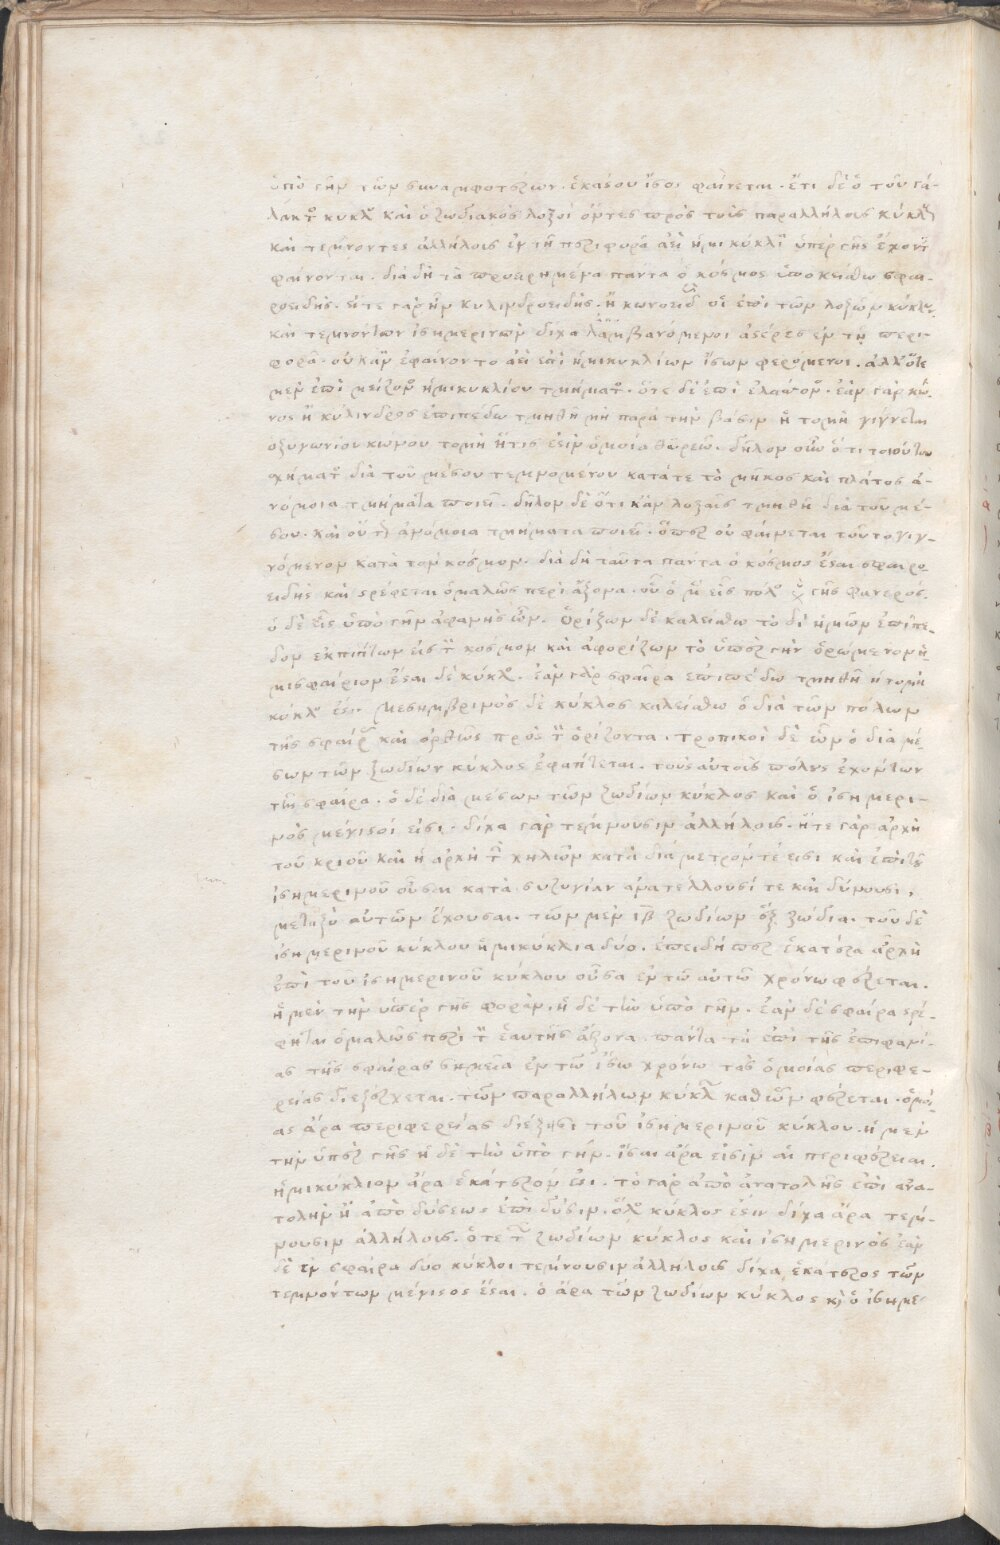 ὑπὸ γῆν τῶν συναμφοτέρων. ἑκάστου ἴσοι φαίνεται. ἔτι δὲ ὁ τοῦ γά-
λακτος κύκλος καὶ ὁ ζωδιακὸς λοξοὶ ὄντες πρὸς τοὺς παραλλήλους κύκλους
καὶ τέμνοντες ἀλλήλους ἐν τῇ περιφορᾷ ἀεὶ ἡμικύκλια ὑπὲρ γῆς ἔχοντες
φαίνονται. διὰ δὴ τὰ προειρημένα πάντα ὁ κόσμος ὑποκείσθω σφαι-
ροειδής. εἴτε γὰρ ἦν κυλινδροειδὴς ἢ κωνοειδὴς οἱ ἐπὶ τῶν λοξῶν κύκλων
καὶ τεμνόντων ἰσημερινὸν δίχα λαμβανόμενοι ἀστέρες ἐν τῇ περι-
φορᾷ. οὐκ ἂν ἐφαίνοντο ἀεὶ ἐπὶ ἡμικυκλίων ἴσων φερόμενοι. ἀλλ' ὅτε
μὲν ἐπὶ μείζονος ἡμικυκλίου τμήματος. ὅτε δὲ ἐπὶ ἐλάσσονος. ἐὰν γὰρ κῶ-
νος ἢ κύλινδρος ἐπιπέδῳ τμηθῇ μὴ παρὰ τὴν βάσιν ἡ τομὴ γίγνεται
ὀξυγωνίου κώνου τομὴ ἥτις ἐστὶν ὁμοία θυρεῷ. δῆλον οὖν ὅτι τοιούτου
σχήματος διὰ τοῦ μέσου τεμνομένου κατά τε τὸ μῆκος καὶ πλάτος ἀ-
νόμοια τμήματα ποιεῖ. δῆλον δὲ ὅτι κἂν λοξαῖς τμηθῇ διὰ τοῦ μέ-
σου. καὶ οὕτως ἀνόμοια τμήματα ποιεῖ. ὅπερ οὐ φαίνεται τοῦτο γιγ-
νόμενον κατὰ τὸν κόσμον. διὰ δὴ ταῦτα πάντα ὁ κόσμος ἔσται σφαιρο-
ειδὴς καὶ στρέφεται ὁμαλῶς περὶ ἄξονα. οὗ ὁ μὲν εἷς πόλος ὑπὲρ γῆς φανερός.
ὁ δὲ εἷς ὑπὸ γῆν ἀφανὴς ὤν. ὁρίζων δὲ καλείσθω τὸ δι' ἡμῶν ἐπίπε-
δον ἐκπίπτων εἰς τὸν κόσμον καὶ ἀφορίζων τὸ ὑπὲρ γῆν ὁρώμενον ἡ-
μισφαίριον ἔσται δὲ κύκλος. ἐὰν γὰρ σφαῖρα ἐπιπέδῳ τμηθῇ ἡ τομὴ
κύκλος ἐστι. μεσημβρινὸς δὲ κύκλος καλείσθω ὁ διὰ τῶν πόλων
τῆς σφαίρας καὶ ὀρθὸς πρὸς τὸν ὁρίζοντα. τροπικοὶ δὲ ὧν ὁ διὰ μέ-
σων τῶν ζωδίων κύκλος ἐφάπτεται. τοὺς αὐτοὺς πόλους ἐχόντων
τῆς σφαίρα. ὁ δὲ διὰ μέσων τῶν ζωδίων κύκλος καὶ ὁ ἰσημερι-
νὸς μέγιστοί εἰσι. δίχα γὰρ τέμνουσιν ἀλλήλους. ἥτε γὰρ ἀρχὴ
τοῦ κριοῦ καὶ ἡ ἀρχὴ τῶν χηλῶν κατὰ διάμετρόν τέ εἰσι καὶ ἐπὶ τοῦ
ἰσημερινοῦ οὖσαι κατὰ συζυγίαν ἀνατέλλουσί τε καὶ δύνουσι,
μεταξὺ αὐτῶν ἔχουσαι. τῶν μὲν ιβ ζωδίων ἓξ ζώδια. τοῦ δὲ
ἰσημερινοῦ κύκλου ἡμικύκλια δύο. ἐπειδήπερ ἑκατέρα ἀρχὴ
ἐπὶ τοῦ ἰσημερινοῦ κύκλου οὖσα ἐν τῷ αὐτῷ χρόνῳ φέρεται.
ἡ μὲν τὴν ὑπὲρ γῆς φοράν. ἡ δὲ τὴν ὑπὸ γῆν. ἐὰν δὲ σφαίρα στρέ-
φηται ὁμαλῶς περὶ τὸν ἑαυτῆς ἄξονα. πάντα τὰ ἐπὶ τῆς ἐπιφανεί-
ας τῆς σφαίρας σημεῖα ἐν τῷ ἴσῳ χρόνῳ τὰς ὁμοίας περιφε-
ρείας διεξέρχεται. τῶν παραλλήλων κύκλων καθ' ὧν φέρεται. ὁμοί-
ας ἄρα περιφερείας διέξεισι τοῦ ἰσημερινοῦ κύκλου. ἡ μὲν
τὴν ὑπὲρ γῆς ἡ δὲ τὴν ὑπὸ γῆν. ἴσαι ἄρα εἰσὶν αἱ περιφέρειαι.
ἡμικύκλιον ἄρα ἑκάτερόν ἐστι. τὸ γὰρ ἀπὸ ἀνατολῆς ἐπὶ ἀνα-
τολὴν ἢ ἀπὸ δύσεως ἐπὶ δύσιν. ὅλος κύκλος ἐστὶν δίχα ἄρα τέμ-
νουσιν ἀλλήλους. ὅτε τῶν ζωδίων κύκλος καὶ ἰσημερινός ἐὰν
δὲ ἐν σφαίρᾳ δύο κύκλοι τέμνουσιν ἀλλήλους δίχα, ἑκάτερος τῶν
τεμνόντων μέγιστος ἔσται. ὁ ἄρα τῶν ζωδίων κύκλος κὶ ὁ ἰσημε-